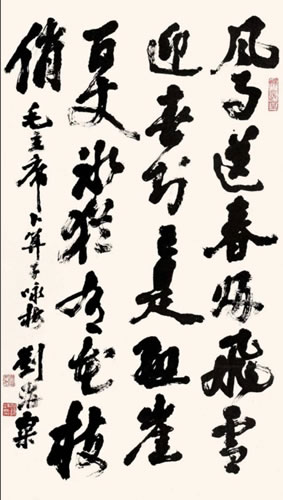 風雨送春归飛雪
迎春到已是悬崖
百丈冰犹有花枝
俏 毛主席卜算子咏梅 劉海粟